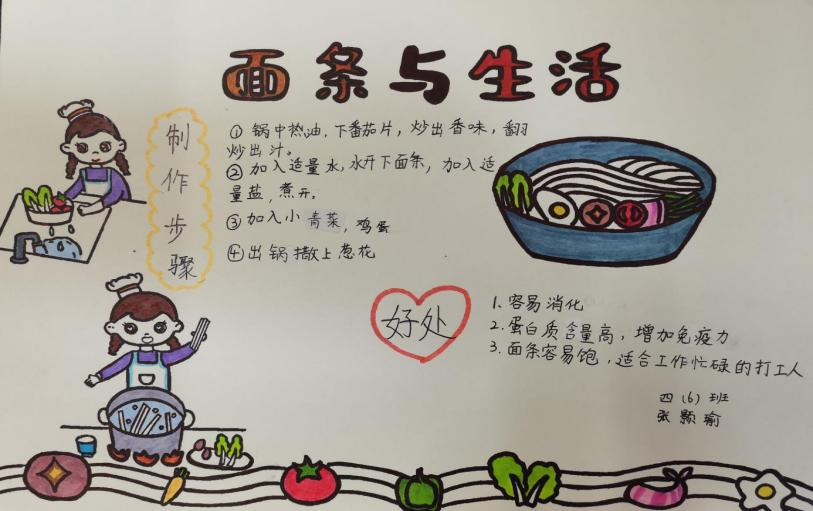 面条与生活
制作步骤
① 锅中热油，下番茄片，炒出香味，翻
炒出汁。
② 加入适量水，水开下面条，加入适
量盐，煮开。
③ 加入小青菜，鸡蛋
④ 出锅撒上葱花
好处
1. 容易消化
2. 蛋白质含量高，增加免疫力
3. 面条容易饱，适合工作忙碌的打工人
四（6）班
张颢瑜